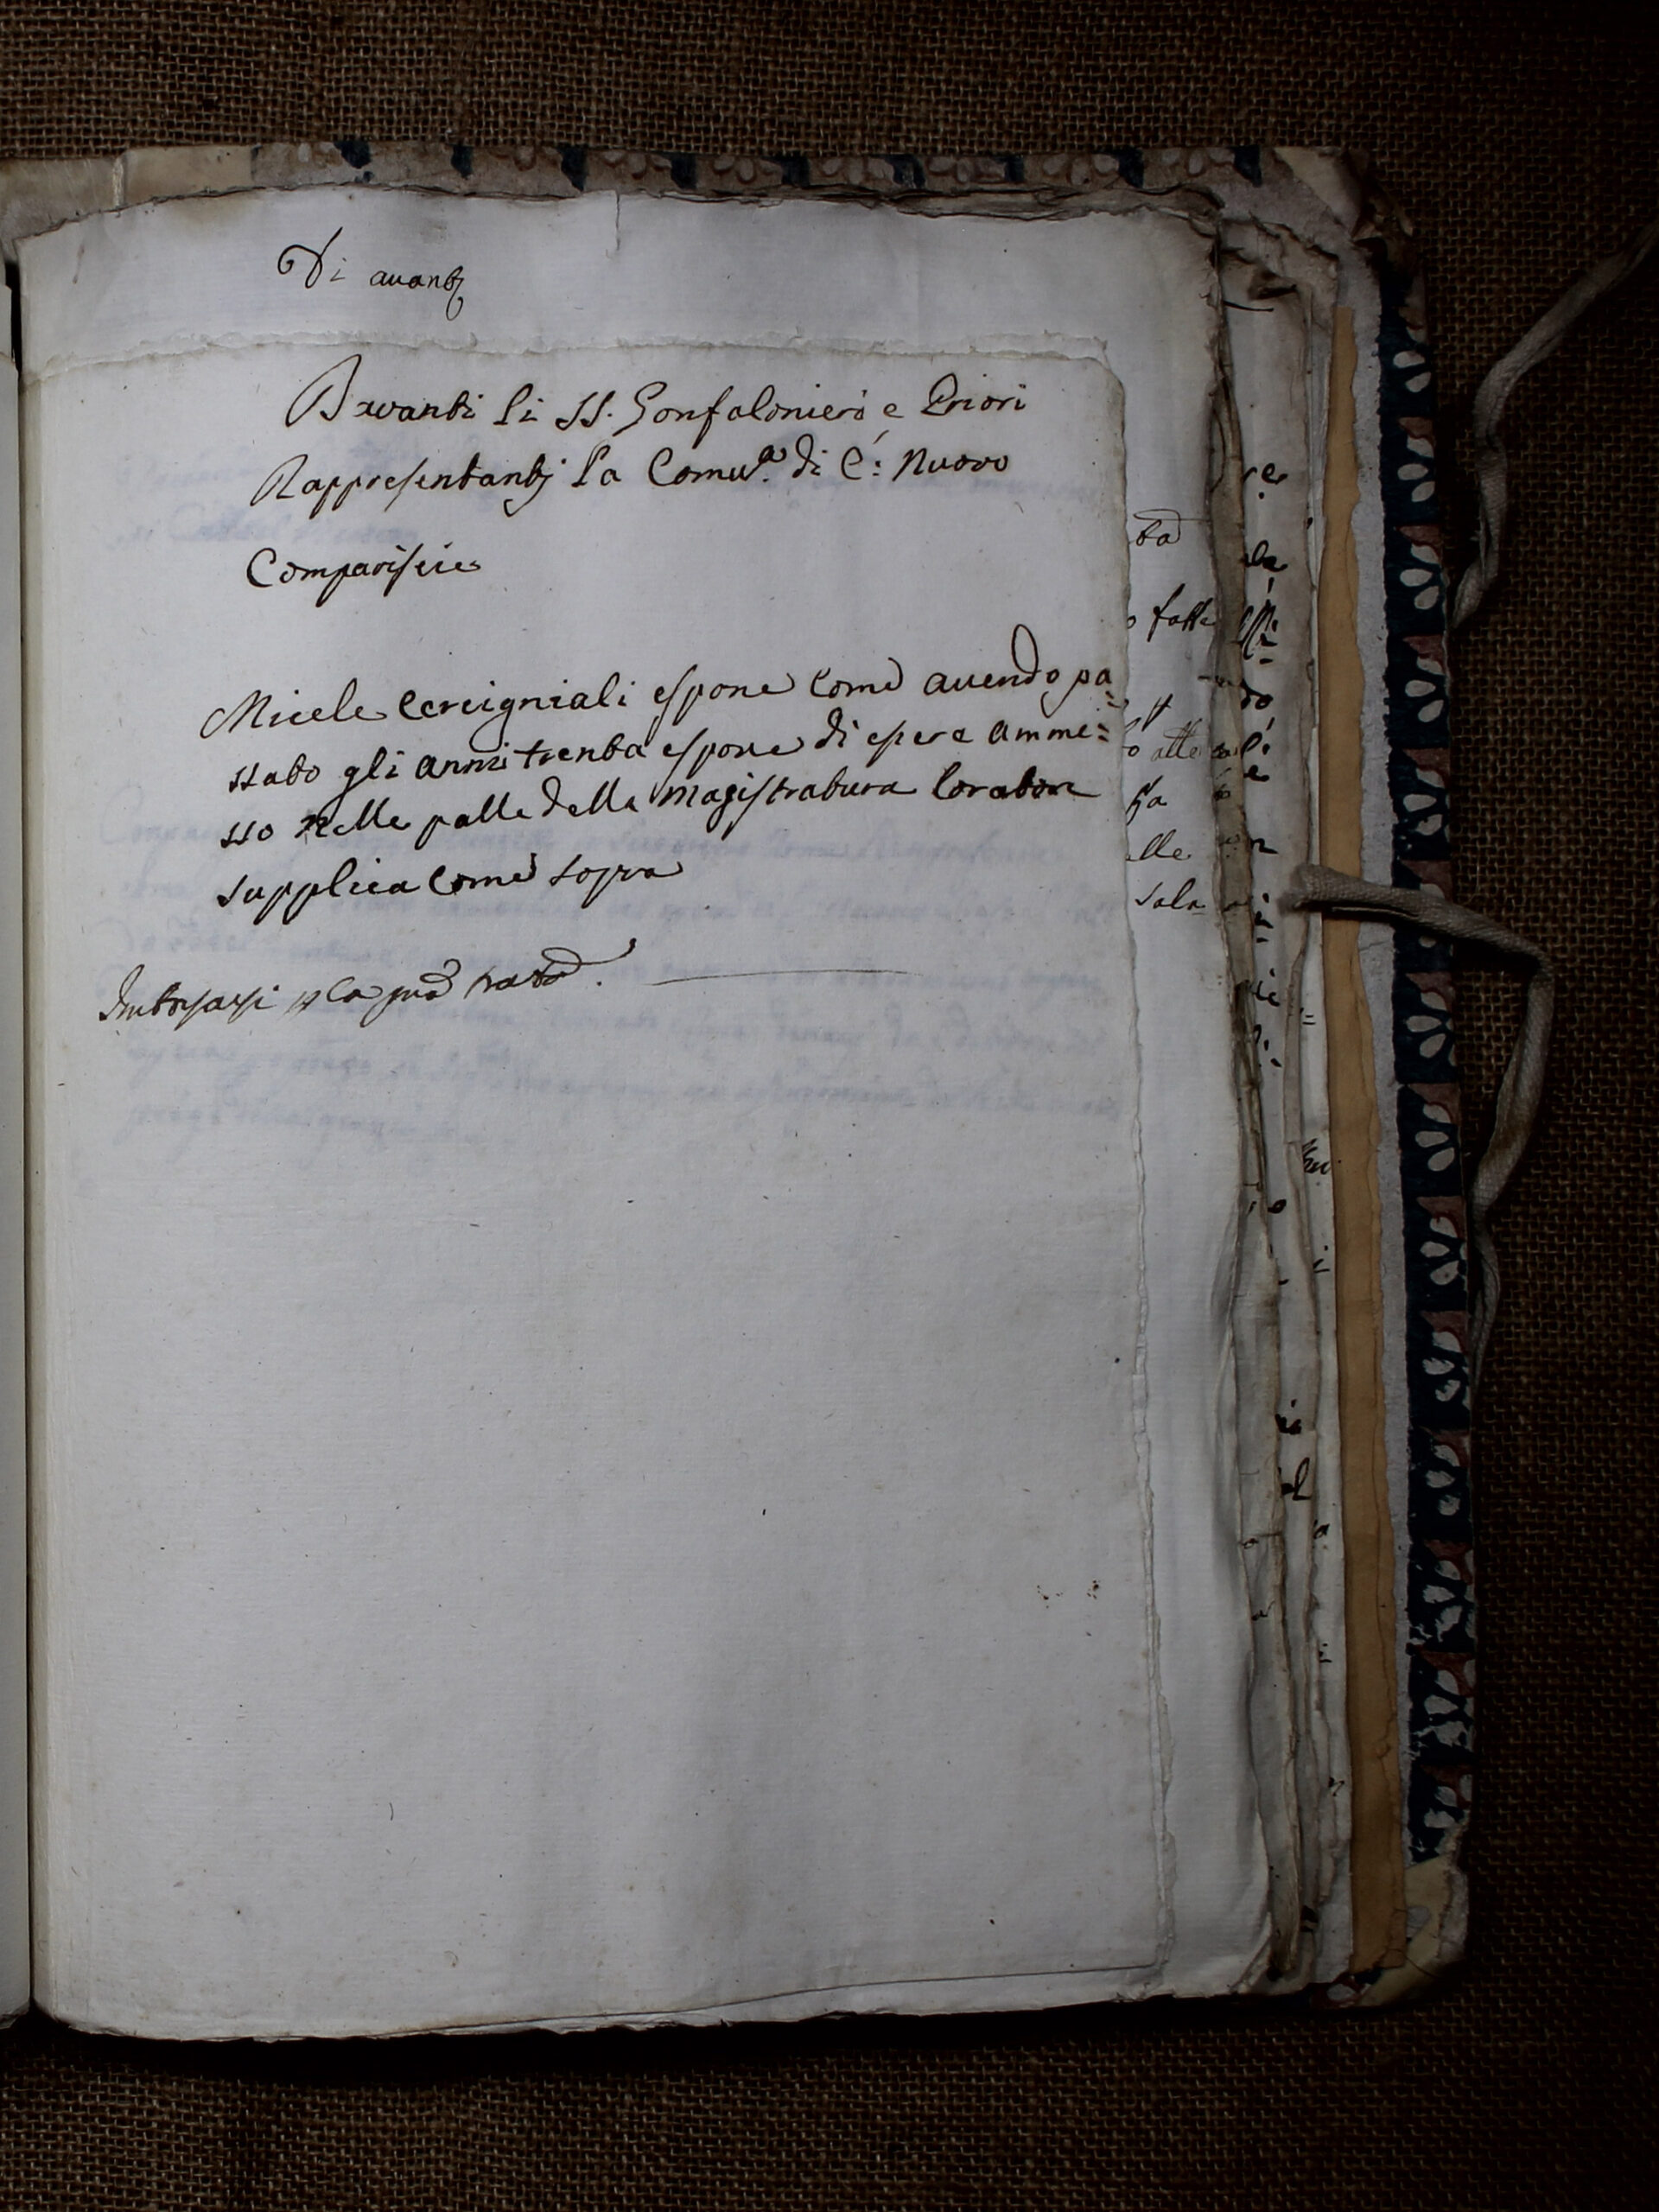 Di auantj
Avanti li SS. Gonfaloniero e Priori
Rappresentantj la Comu.a di C: Nuovo
Compariscie
Micele Cercigniali espone come auendo pa=
ssato gli anni trenta espone di esere amme=
sso nelle palle della Magistratura loratore
supplica come sopra
Imborsarsi p la pma tratta.
ta
fatte
alle
elle
Sala